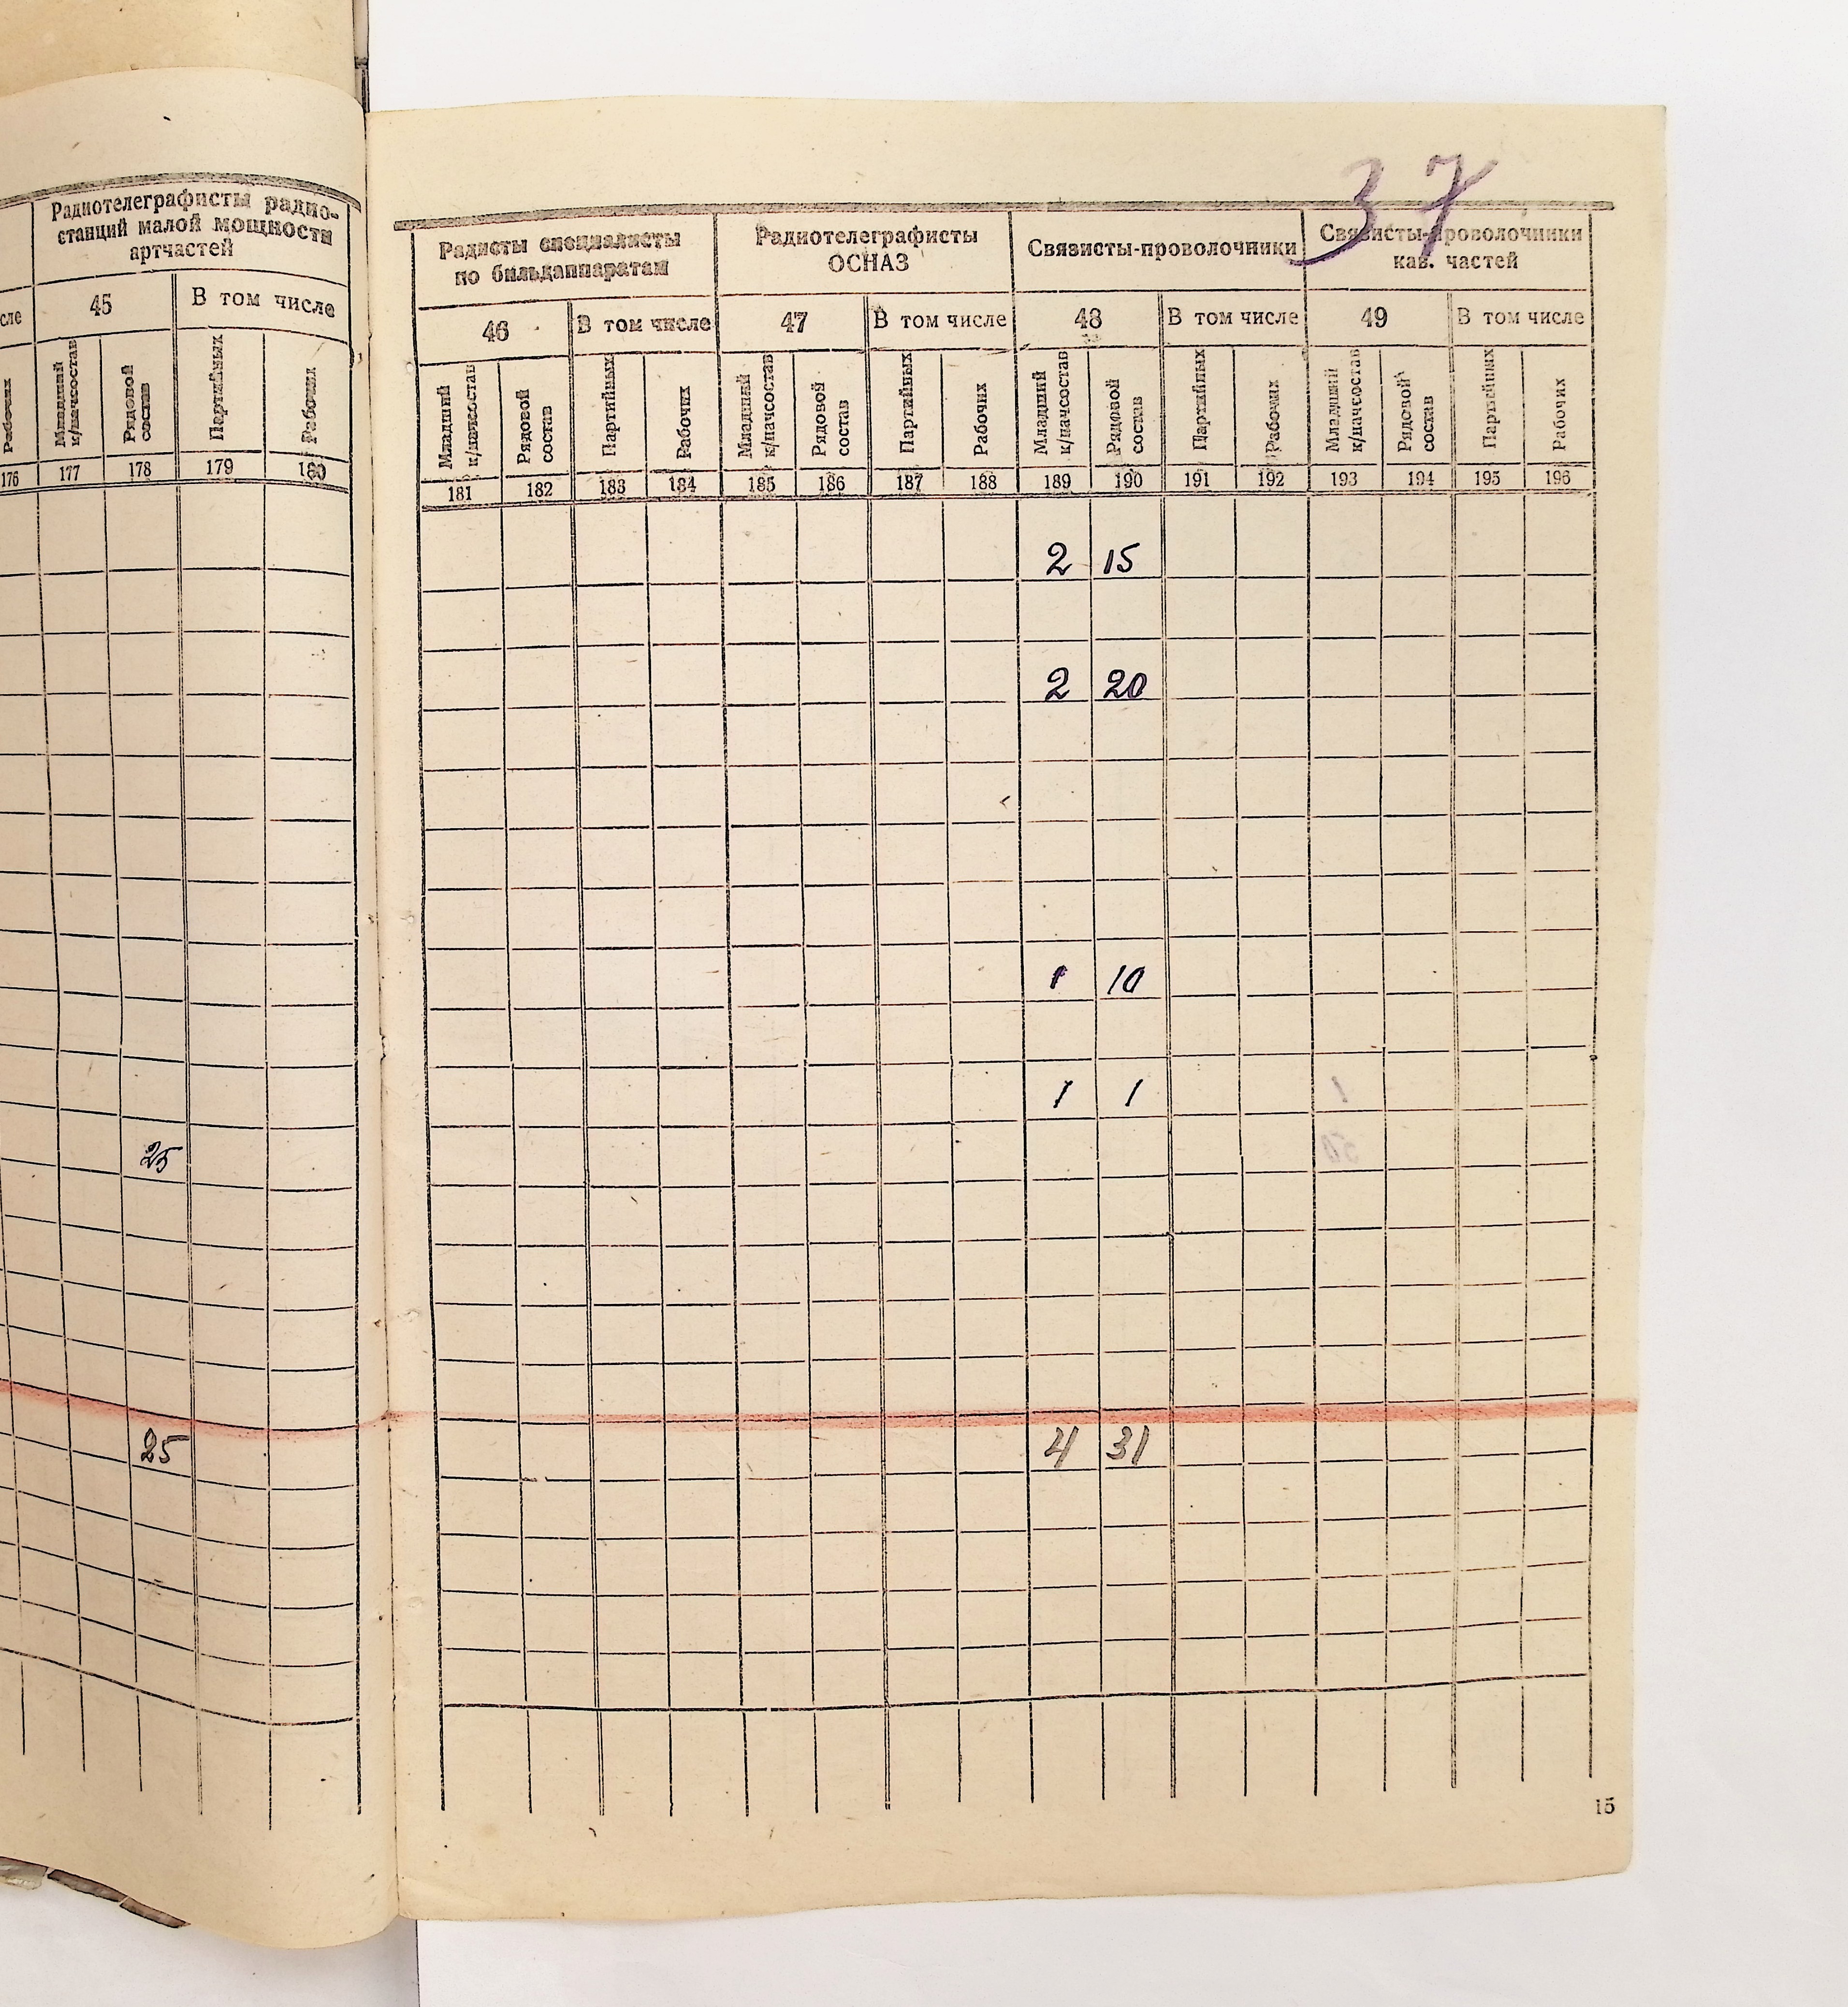 Радиотелеграфисты радио-
станций малой мощности
артчастей
сле
45
В том числе
Рабочих
Младший к/начсостав
Рядовой состав
Партийных
Рабочих
176 177 178 179 180
25
25
37
Радисты специалисты
по бильдаппаратам
Радиотелеграфисты
ОСНАЗ
Связисты-проволочники
Связисты-проволочники
кав. частей
46 В том числе 47 В том числе 48 В том числе 49 В том числе
Младший к/начсостав
Рядовой состав
Партийных
Рабочих
Младший к/начсостав
Рядовой состав
Партийных
Рабочих
Младший к/начсостав
Рядовой состав
Партийных
Рабочих
Младший к/начсостав
Рядовой состав
Партийных
Рабочих
181 182 183 184 185 186 187 188 189 190 191 192 193 194 195 196
2 15
2 20
1 10
1 1
4 31
15